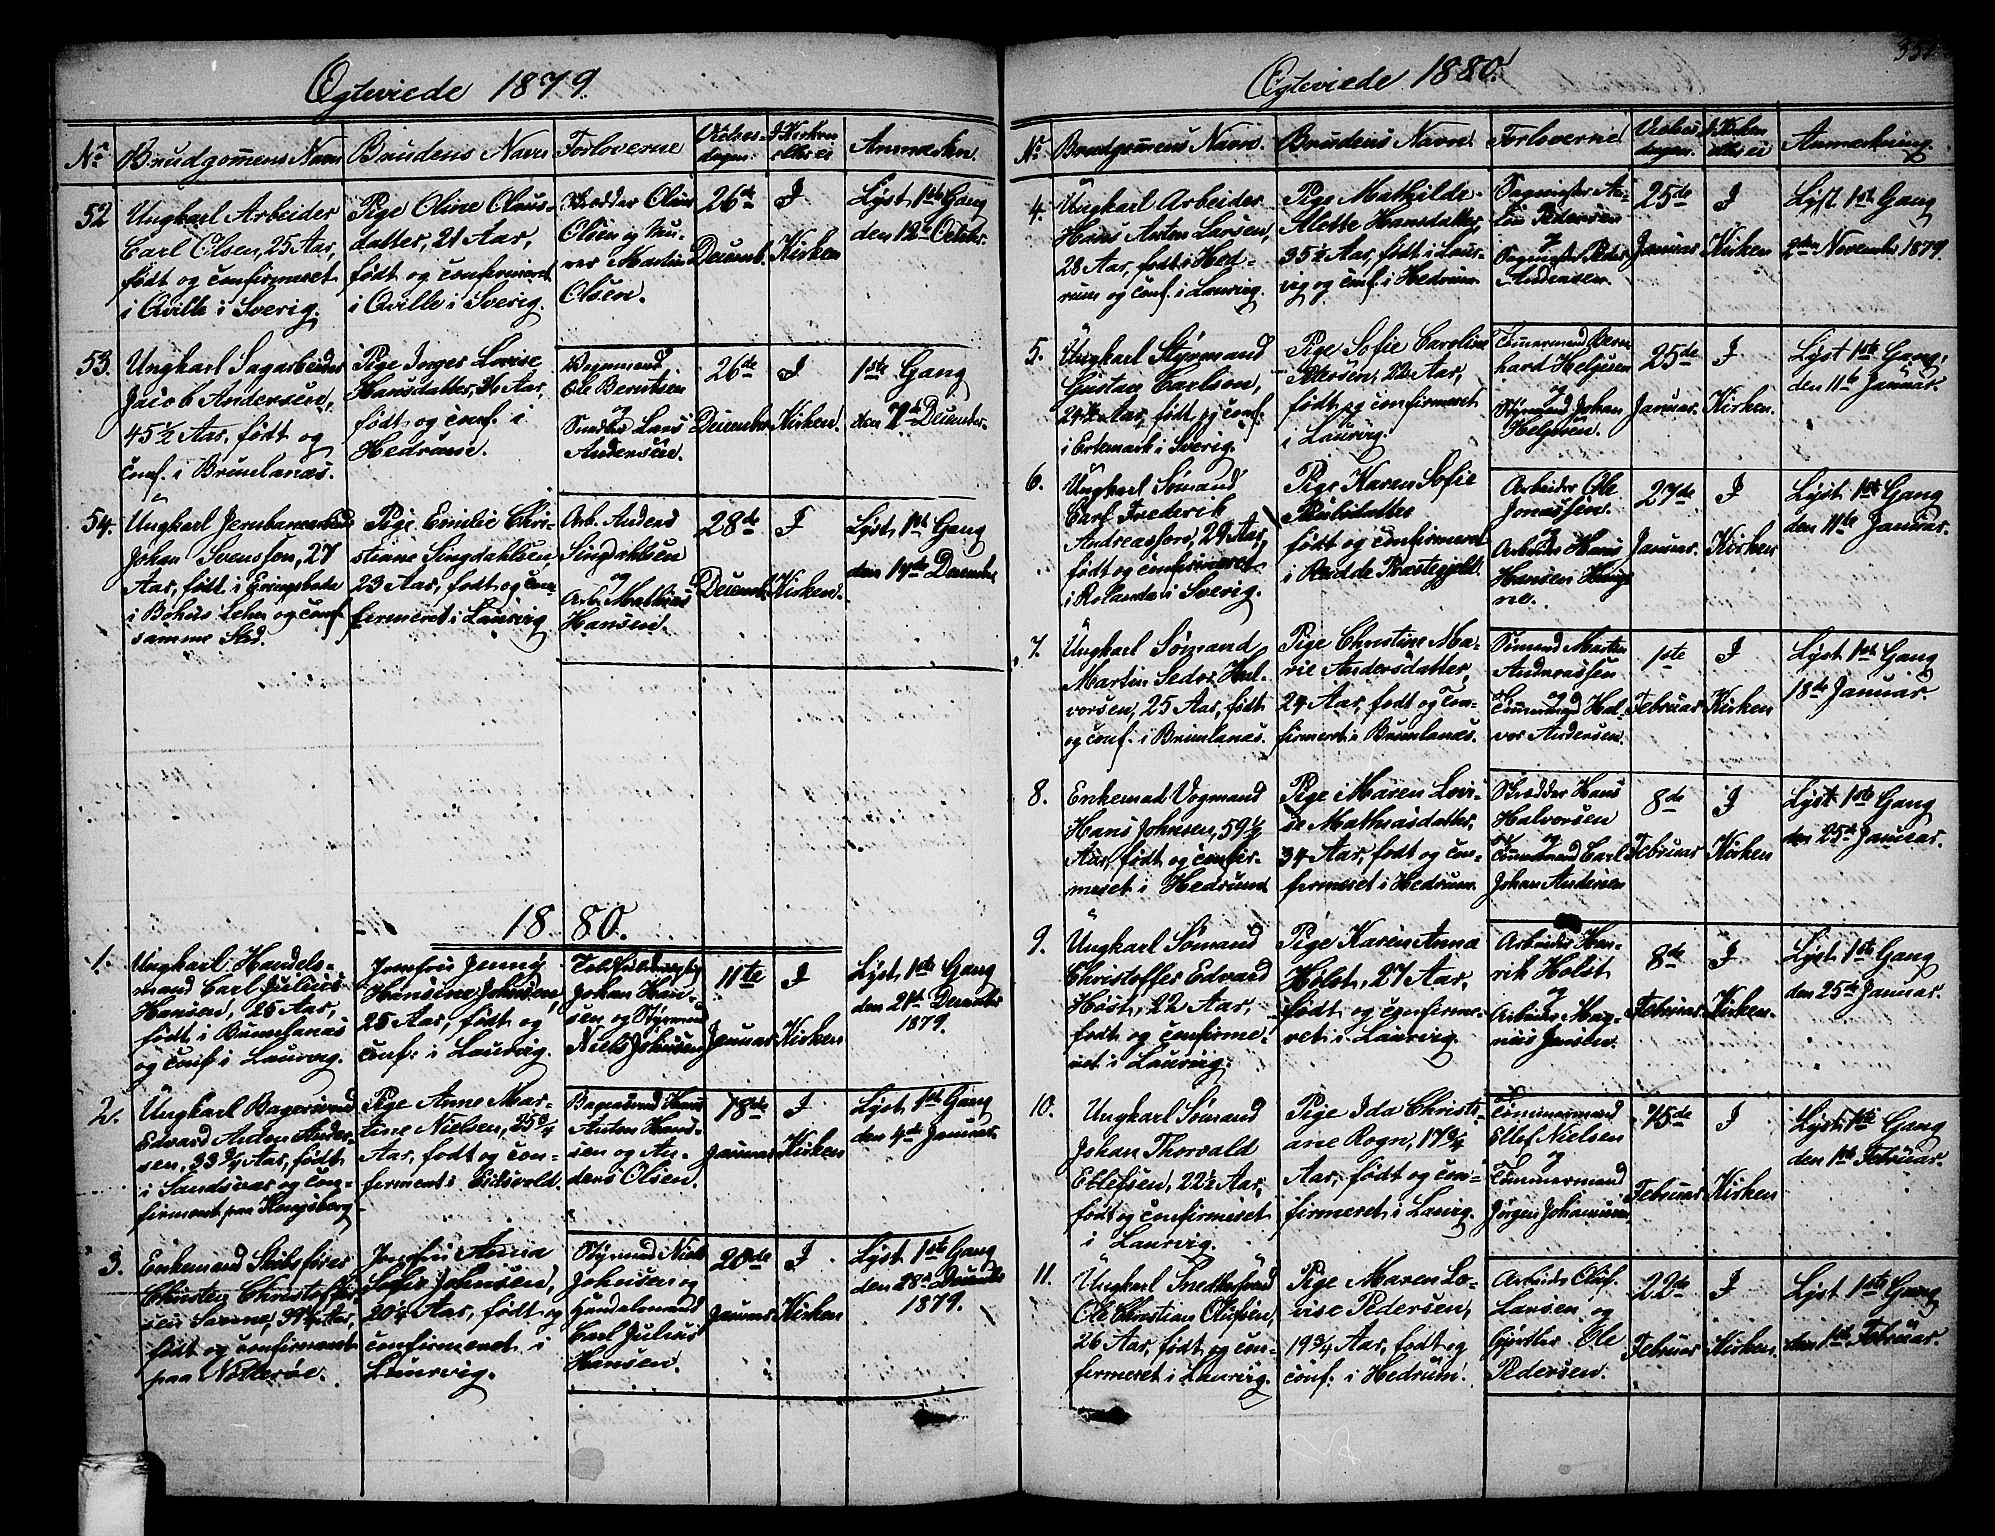 Egteviede 1879.
No
Brudgommens Navn
Brudens Navn
Forloverne
Vielses-
dagen.
I Kirken
eller ei
Anmærkn.
52
Ungkarl Arbeider
Carl Olsen, 25 Aar,
født og confirmeret
i Qville i Sverig.
Pige Oline Claus-
datter, 21 Aar,
født og confirmeret
i Qville i Sverig.
Skrædder Olaus
Olsen og
Martin
Olsen.
26de
Decemb.
I
Kirken
Lyst 1ste Gang
den 12te Octbr.
53.
Ungkarl Sagarbeider
Jacob Andersen,
45½ Aar, født og
conf. i Brunlanæs.
Pige Inger Lovise
Hansdatter, 36 Aar,
født og conf. i
Hedrum.
Ole Berntsen
og
Lars
Andersen.
26de
December
I
Kirken.
1ste Gang
den 7de December.
54.
Ungkarl
Johan Svensson, 27
Aar, født i
i Bohus Lehn og conf.
samme Sted.
Pige Emilie Chri-
stiane Singdahlsen,
23 Aar, født og con-
firmeret i Laurvig
Arb. Anders
Singdahlsen
og
Arb. Mathias
Hansen.
28de
Decemb.
I
Kirken.
Lyst 1ste Gang
den 14de Decembr
1880.
1.
Ungkarl Handels-
mand Carl Julius
Hansen, 25 Aar,
født i Brunlanæs
og conf. i Laurvig.
Jomfru Jenny
Hansine Johnsen,
25 Aar, født og
conf. i Laurvig.
Johan Han-
sen og Styrmand
Niels Johnsen
11te
Januar
I
Kirken
Lyst 1ste Gang
den 21de December
1879.
2.
Ungkarl Bagersvend
Edvard Anton Ander-
sen, 23¾ Aar, født
i Sandsvær og con-
firmeret paa Kongsberg
Pige Anne Mar-
tine Nielsen, 35¾
Aar, født og con-
firmeret i Eidsvold.
Bagersvend Hans
Anton Hans-
sen og An-
ders Olsen.
18de
Januar
I
Kirken
Lyst 1ste Gang
den 4de Januar.
3.
Enkemand Skibsfører
Christen Christoffer-
sen
født og confirmeret
paa Nøtterøe.
Jomfru Anna
Sofie Johnsen,
20¼ Aar, født og
confirmeret i
Laurvig.
Styrmand Niels
Johnsen og
Handelsmand
Carl Julius
Hansen.
20de
Januar
I
Kirken
Lyst 1ste Gang
den 28de December
1879.
Egteviede 1880.
No
Brudgommens Navn.
Brudens Navn.
Forloverne.
Vielses-
dagen.
I Kirken
eller ei
Anmærkning.
4.
Ungkarl Arbeider
Hans Anton Larsen,
28 Aar, født i Hed-
rum og conf. i Laurvig.
Pige Mathilde
Alette Hansdatter,
35½ Aar, født i Laur-
vig og conf. i Hedrum.
Pedersen
og
Peder
Andersen.
25de
Januar
I
Kirken
Lyst 1ste Gang
2den November 1879.
5.
Ungkarl Styrmand
Gustav Carlson,
24½ Aar, født og conf.
i Ertemark i Sverig.
Pige Sofie Caroline
Petersen, 22½ Aar,
født og confirmeret
i Laurvig.
Tømmermand Bern-
hard Helgesen
og
Styrmand Johan
Helgesen.
25de
Januar.
I
Kirken.
Lyst 1ste Gang
den 11te Januar.
6.
Ungkarl Sømand
Carl Frederik
Andreasson, 24 Aar,
født og confirmeret
i Rolanda i Sverig.
Pige Karen Sofie
født og confirmeret
i Præstegjeld.
Arbeider Ole
Jonassen.
og
Arbeider Hans
Hansen
27de
Januar
I
Kirken
Lyst 1ste Gang
den 11te Januar.
7.
Ungkarl Sømand
Martin Sedor Hal-
vorsen, 25 Aar, født
og conf. i Brunlanæs.
Pige Christine Ma-
rie Andersdatter,
24 Aar, født og con-
firmeret i Brunlanæs.
Sømand Martin
Andreassen
og
Tømmermand Hal-
vor Andersen.
1ste
Februar
I
Kirken
Lyst 1ste Gang
18de Januar.
8.
Enkemand Vognmand
Hans Johnsen, 59½
Aar, født og confir-
meret i Hedrum
Pige Maren Lovi-
se Mathiasdatter,
34 Aar, født og con-
firmeret i Hedrum
Skrædder Hans
Halvorsen
og
Tømmermand Carl
Johan Andersen
8de
Februar
I
Kirken
Lyst 1ste Gang
den 25de Januar.
9.
Ungkarl Sømand
Christoffer Edvard
Høst, 22 Aar,
født og confirme-
ret i Laurvig.
Pige Karen Anna
Holst, 27 Aar,
født og confirme-
ret i Laurvig.
Arbeider Hen-
rik Holst
og
Arbeider Mag-
nus Jensen.
8de
Februar
I
Kirken.
Lyst 1ste Gang
den 25de Januar.
10.
Ungkarl Sømand
Johan Thorvald
Ellefsen, 22½ Aar,
født og confirmeret
i Laurvig.
Pige Ida Christi-
ane Rogn, 17¾
Aar, født og con-
firmeret i Laurvig.
Tømmermand
Ellef Nielsen
og
Tømmermand
Jørgen Johannesen
15de
Februar
I
Kirken
Lyst 1ste Gang
den 1ste Februar.
11.
Ungkarl Snedkersvend
Ole Christian Olufsen,
26 Aar, født og con-
firmeret i Laurvig.
Pige Maren Lo-
vise Pedersen,
19¾ Aar, født og
conf. i Hedrum.
Arbeider Oluf
Larsen og
Gjørtler Ole
Pedersen.
22de
Februar
I
Kirken.
Lyst 1ste Gang
den 1ste Februar.